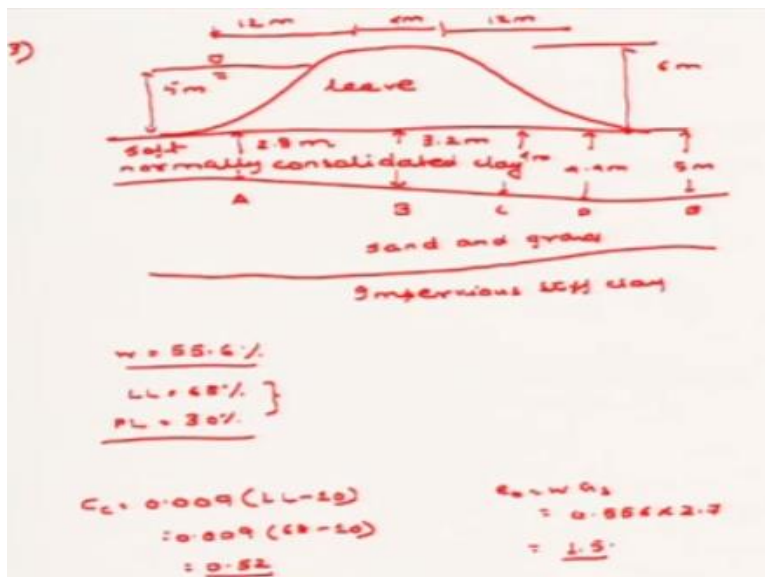 12m 4m 12m
3)
5m
leave
6m
2.8m 3.2m
soft
normally consolidated clay 4m 4.4m 5m
A B C D E
sand and gravel
Impervious stiff clay
w = 55.6%
LL = 68%
PL = 30%
Cc = 0.009 (LL-10)
= 0.009 (68-10)
= 0.52
e₀ = w Gs
= 0.556 x 2.7
= 1.5